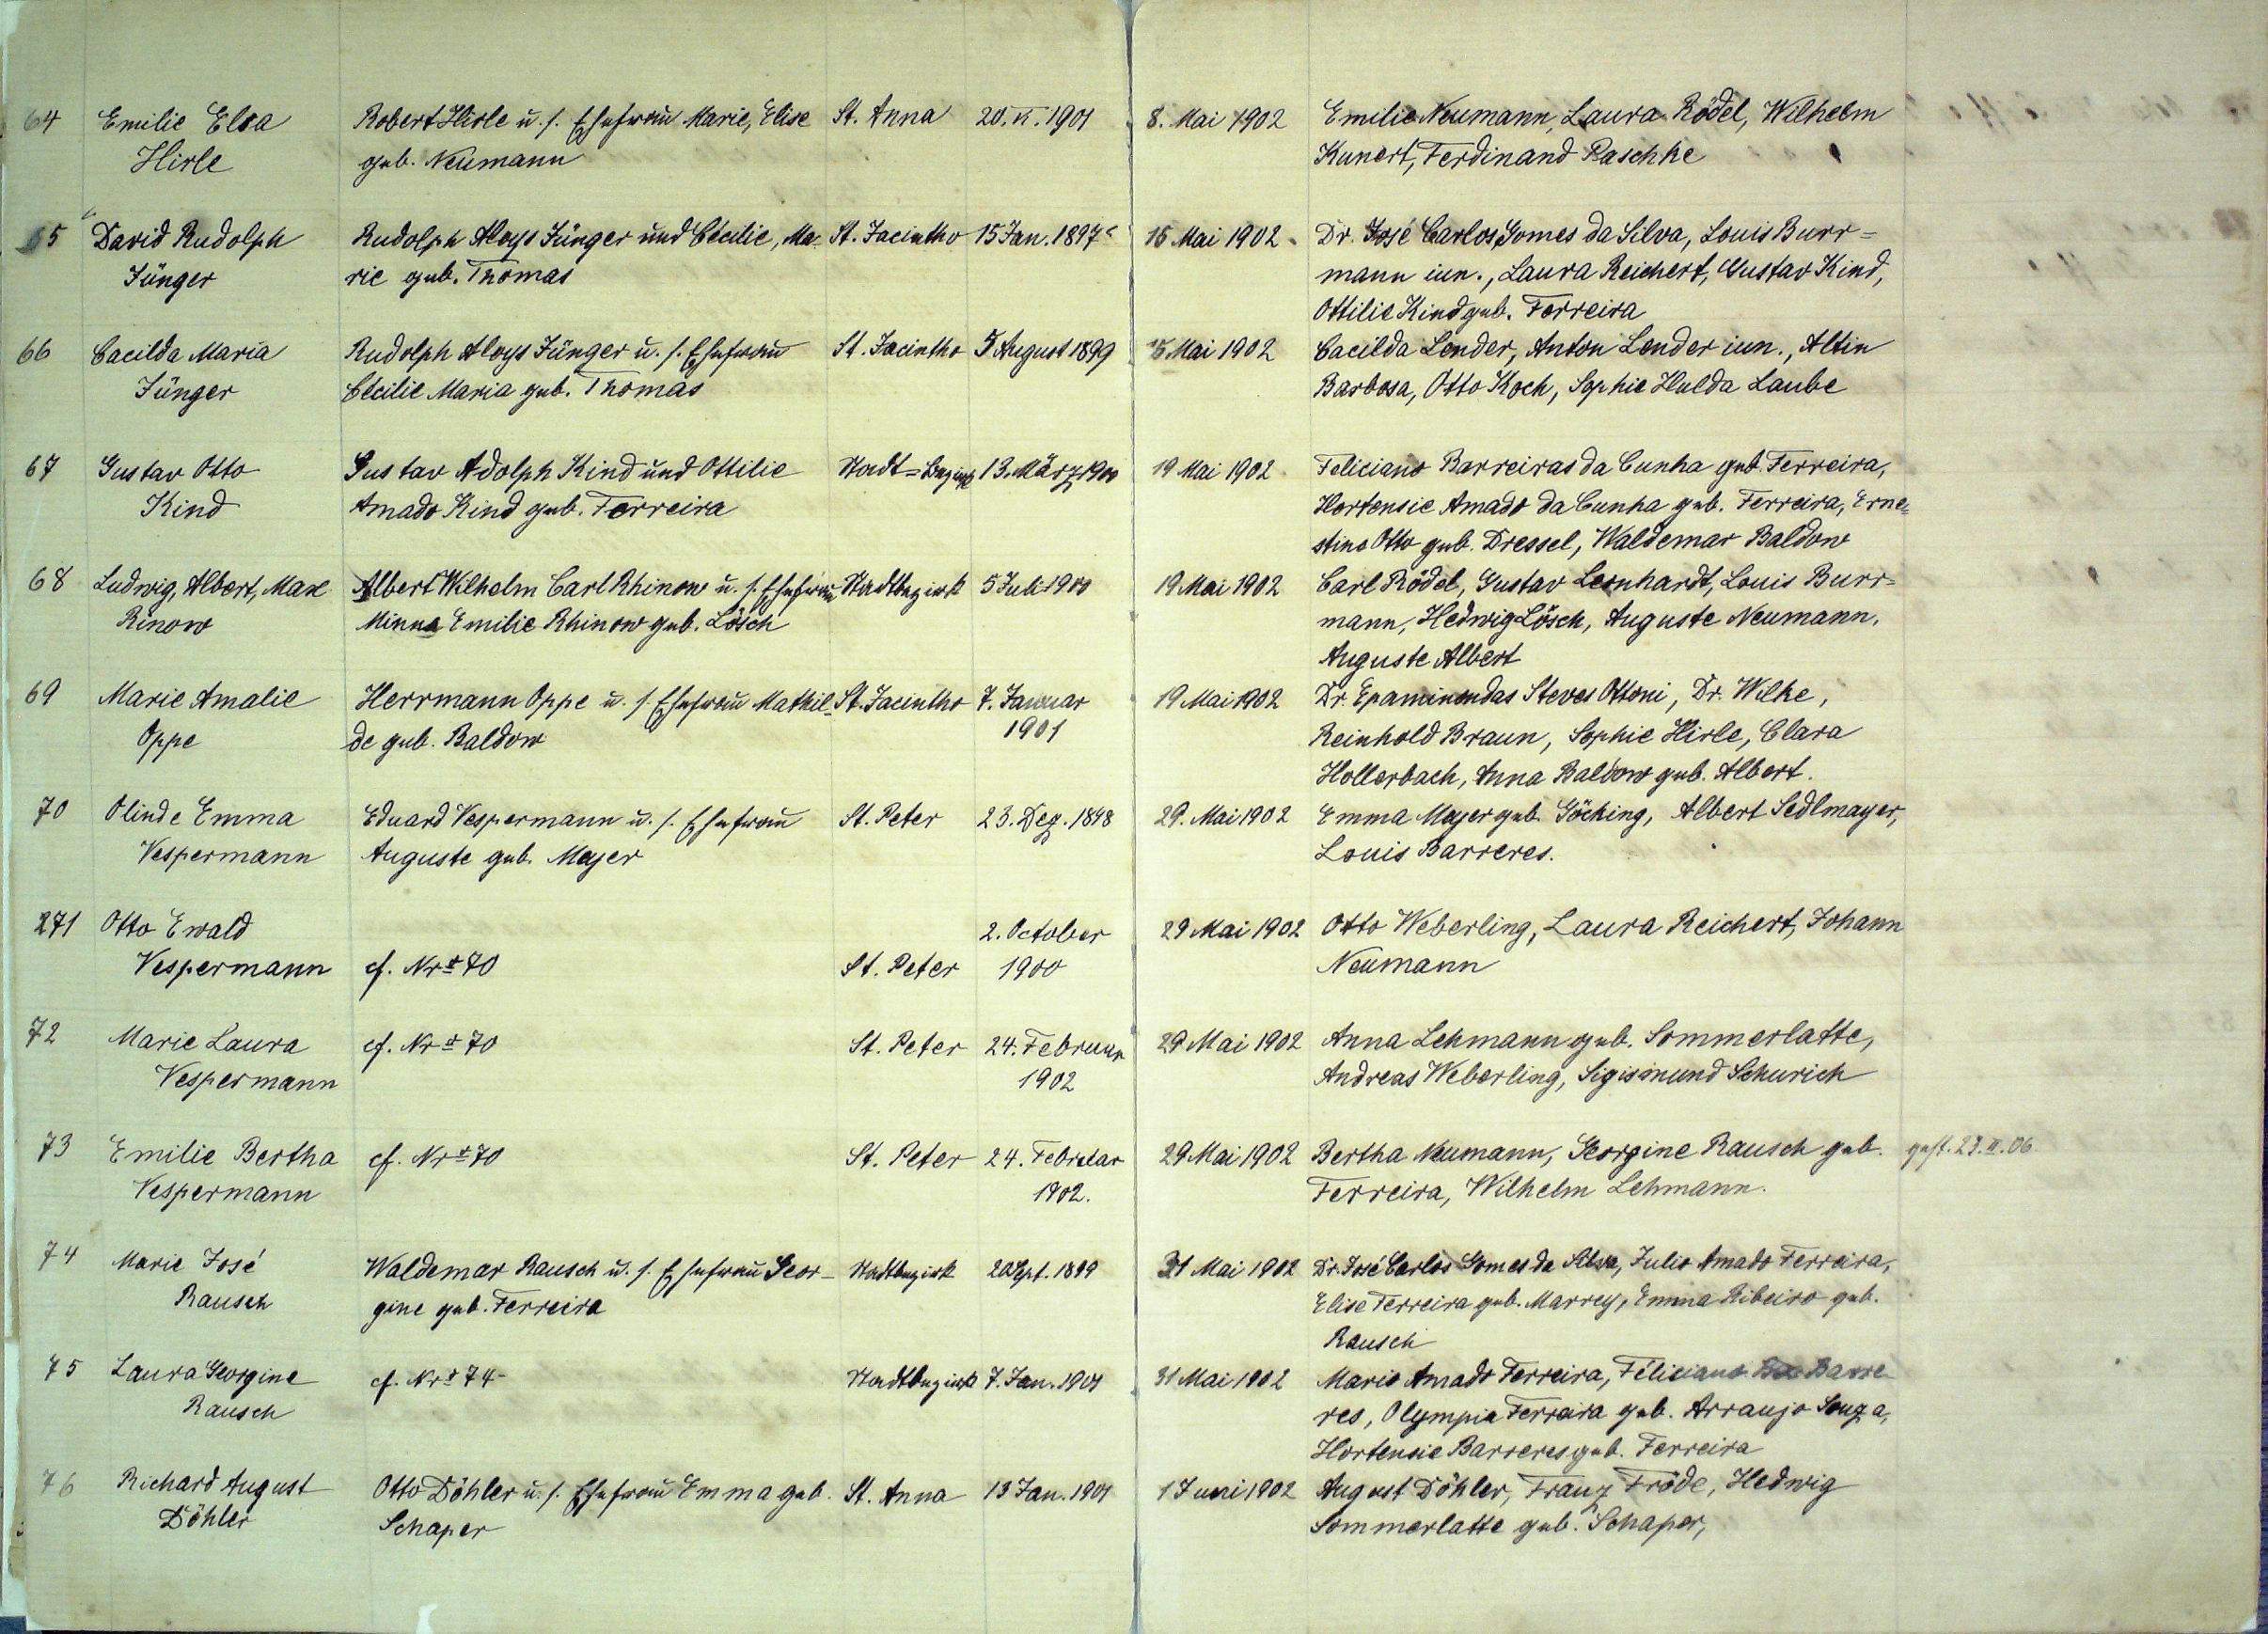 64 Emilie Elsa Robert Hirle u. s. Ehefrau Marie, Elise St. Anna 20. IX. 1901 8. Mai 1902 Emilie Neumann, Laura Rödel, Wilhelm
Hirle geb. Neumann Kunert, Ferdinand Raschke
65 David Rudolph Rudolph Aloys Jünger und Cäcilie, Ma- St. Jacintho 15 Jan. 1897 15 Mai 1902 Dr. José Carlos Gomes da Silva, Louis Burr=
Jünger rie geb. Thomas mann iun., Laura Reichert, Gustav Kind,
Ottilie Kind geb. Ferreira
66 Cacilda Maria Rudolph Aloys Jünger u. s. Ehefrau St. Jacintho 5 August 1899 15 Mai 1902 Cacilda Lender, Anton Lender iun., Altin
Jünger Cäcilie Maria geb. Thomas Barbosa, Otto Koch, Sophie Hulda Laube
67 Gustav Otto Gustav Adolph Kind und Ottilie Stadt=Bezirk 13. März 1900 19 Mai 1902 Feliciano Barreiras da Cunha geb. Ferreira,
Kind Amado Kind geb. Ferreira Hortensie Amado da Cunha geb. Ferreira, Erne=
stine Otto geb. Dressel, Waldemar Baldow
68 Ludwig, Albert, Max Albert Wilhelm Carl Rhinow u. s. Ehefrau Stadtbezirk 5 Juli 1900 19 Mai 1902 Carl Rödel, Gustav Leonhardt, Louis Burr=
Rinow Minna Emilie Rhinow geb. Lösch mann, Hedwig Lösch, Auguste Neumann,
Auguste Albert
69 Marie Amalie Herrmann Oppe u. s. Ehefrau Mathil- St. Jacintho 7. Januar 19 Mai 1902 Dr. Epaminondas Steves Ottoni, Dr. Wilke,
Oppe de geb. Baldow 1901 Reinhold Braun, Sophie Hirle, Clara
Hollerbach, Anna Baldow geb. Albert.
70 Olinde Emma Eduard Vespermann u. s. Ehefrau St. Peter 23. Dez. 1898 29. Mai 1902 Emma Mayer geb. Göcking, Albert Sedlmayer,
Vespermann Auguste geb. Mayer Louis Barreres.
271 Otto Ewald 2. October 29 Mai 1902 Otto Weberling, Laura Reichert, Johann
Vespermann cf. Nr. 70 St. Peter 1900 Neumann
72 Marie Laura cf. Nr. 70 St. Peter 24. Februar 29 Mai 1902 Anna Lehmann geb. Sommerlatte,
Vespermann 1902 Andreas Weberling, Sigismund Schurich
73 Emilie Bertha cf. Nr. 70 St. Peter 24. Februar 29 Mai 1902 Bertha Neumann, Georgine Rausch geb. gest. 23. II. 06
Vespermann 1902. Ferreira, Wilhelm Lehmann.
74 Marie José Waldemar Rausch u. s. Ehefrau Geor- Stadtbezirk 20 Sept. 1899 31 Mai 1902 Dr. José Carlos Gomes da Silva, Julio Amado Ferreira,
Rausch gine geb. Ferreira Elise Ferreira geb. Marrey, Emma Ribeiro geb.
Rausch
75 Laura Georgine cf. Nr. 74 Stadtbezirk 7. Jan. 1901 31 Mai 1902 Mario Amado Ferreira, Féliciano Barre
Rausch res, Olympia Ferreira geb. Arraujo Souza,
Hortensie Barreres geb. Ferreira
76 Richard August Otto Döhler u. s. Ehefrau Emma geb. St. Anna 13 Jan. 1901 1 Juni 1902 August Döhler, Franz Fröde, Hedwig
Döhler Schaper Sommerlatte geb. Schaper,